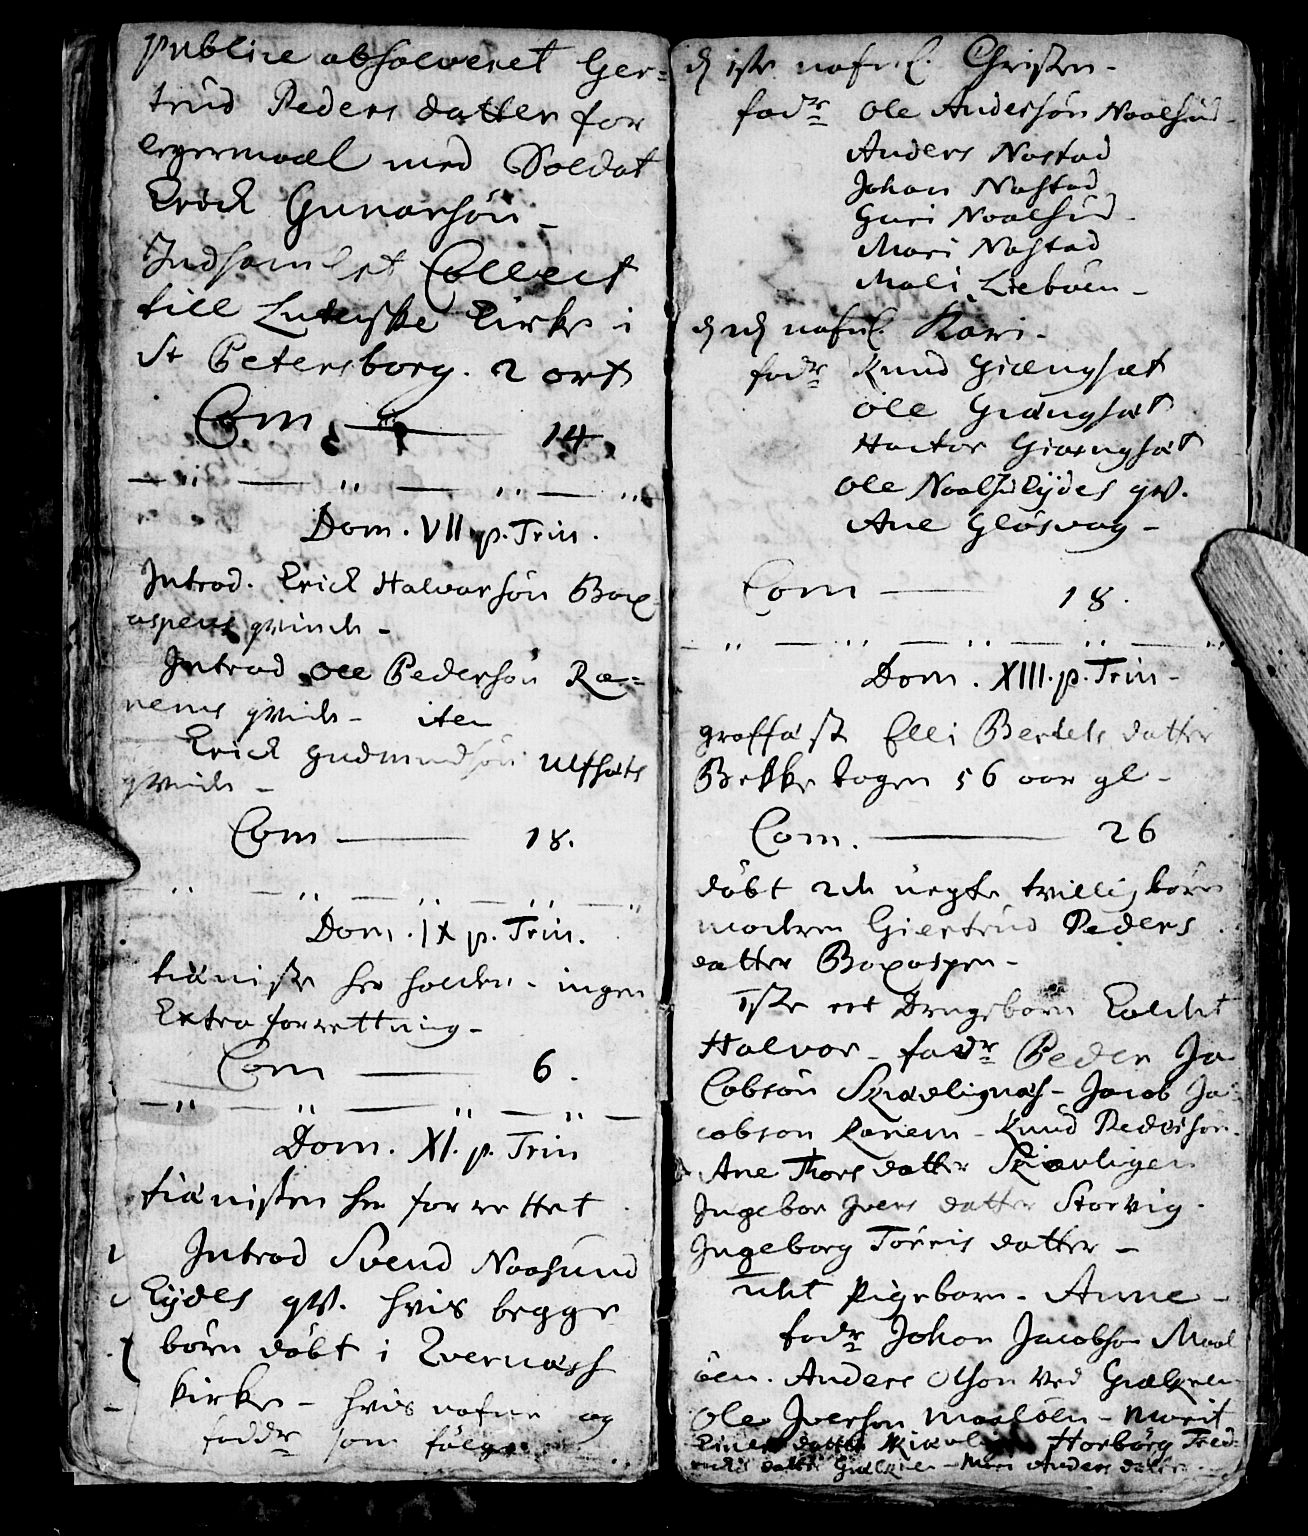 publice absolveret Ger=
trud Peders datter for
legermaal med Soldat
Erick Gunarsøn -
Indsamlet Collect
till Luterske Kirke i
St Petersborg. 2 ort
Com 14
Dom. VII p. Trin.
Introd. Erick Halvorsøn Box
aspens qvinde -
Introd Ole Pedersøn Ræ=
nems qvinde - item
Erick Gudmundsøn Ulfsæts
qvinde -
Com 18.
Dom. IX p. Trin.
tiæniste her holden - ingen
Extra forrettning -
Com 6.
Dom. XI. p. Trin
tiænisten her forrettet
Introd Svend Naasund
Eydes qv. hvis begge
børn døbt i Qvernæss
kirke - hvis nafne og
fadd.r som følge
d iste nafnl. Christen -
fad.r Ole Andersøn Naalsund -
Anders Nastad
Johan Nastad
Guri Naalsund -
Mari Nastad
Mali Liebøen -
d 2d nafnl. Kari -
fad.r Knud Giængsæt
Ole Giængsæt
Hactor Giængsæt
Ole Naalsd Eydes qv.
Ane Gløsvag -
Com 18.
Dom. XIII. p. Trin -
graffæst Elli Bertels datter
Bekkehagen 56 aar gl -
Com. 26
døbt 2de uegte tvilling børn
modren Giertrud Peders
datter Boxaspen -
1ste et Drngebarn kaldet
Halvor - fad.r Peder Ja
Cobsøn Skiævlignæs - Jacob Ja=
cobson Ranem - Knud Pedersøn -
Ane Thors datter Skiævligen
Ingebor Ivers datter Storvig -
Ingeborg Torris datter -
Pigebarn - Anne -
fad.r Johan Jacobsøn Maal
øen. Anders Olson ved
Ole Iversøn Maaløen - Marit
Einers datter Horborg Fred=
datter - Mari Anders datter